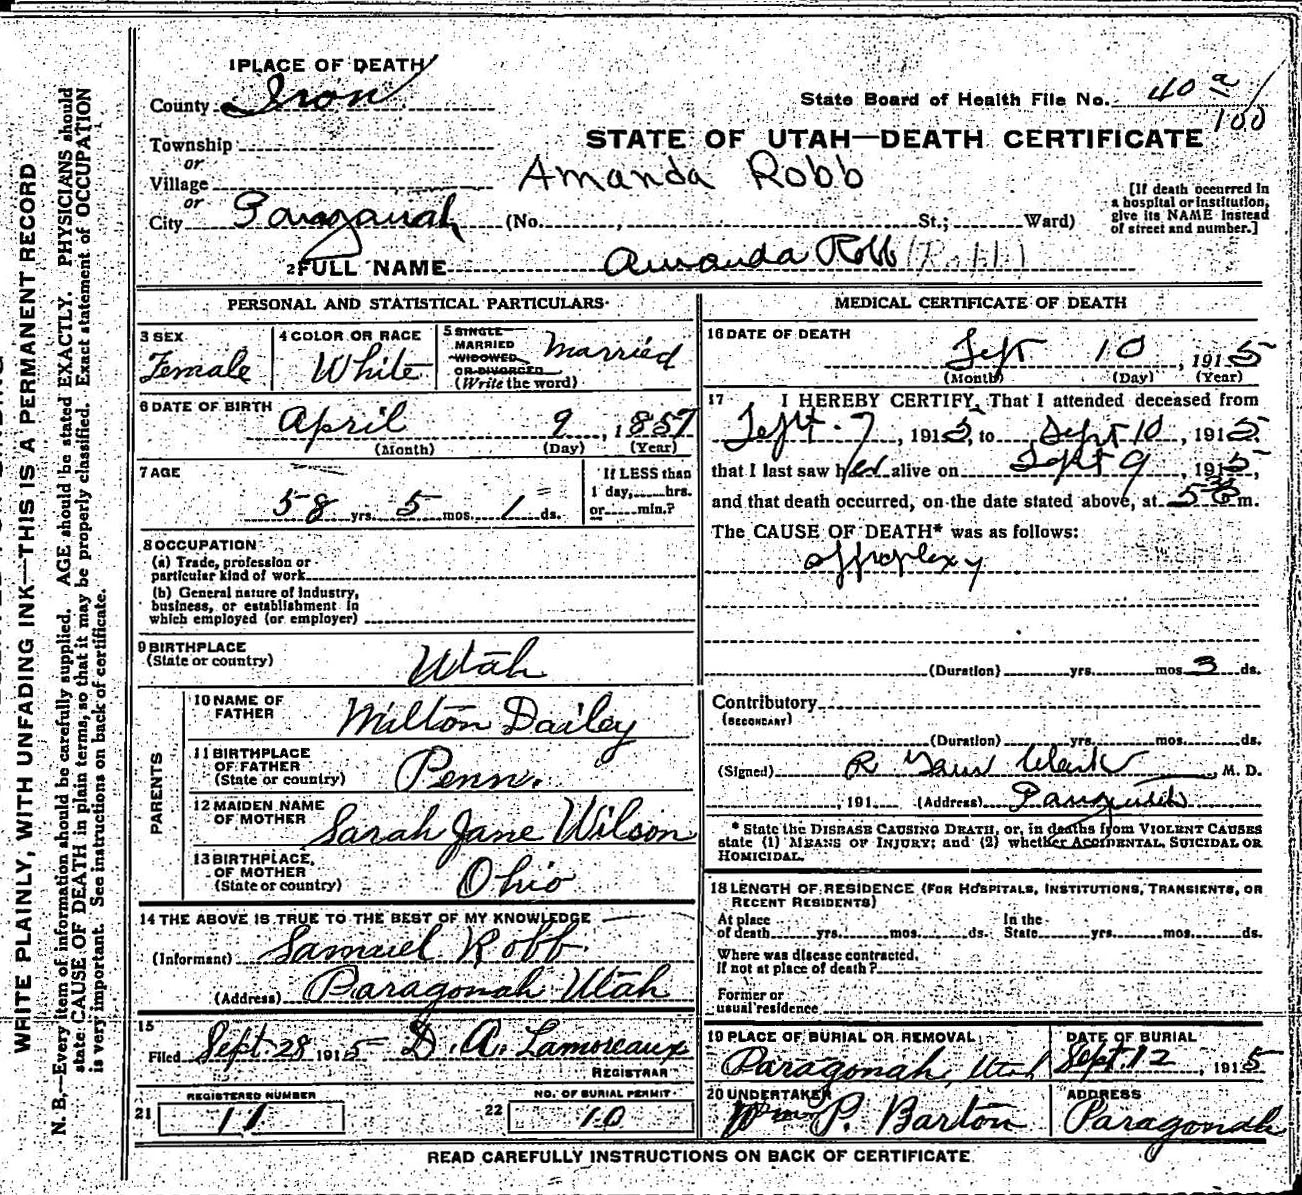 1 PLACE OF DEATH
County Iron
State Board of Health File No. 40 a/100
Township
or
Village
or
City Paragonah (No. , St.; Ward)
STATE OF UTAH—DEATH CERTIFICATE
Amanda Robb
[If death occurred in a hospital or institution, give its NAME instead of street and number.]
2 FULL NAME Amanda Robb (Robb)
PERSONAL AND STATISTICAL PARTICULARS
3 SEX
Female
4 COLOR OR RACE
White
5 SINGLE
MARRIED
WIDOWED
OR DIVORCED
(Write the word)
Married
6 DATE OF BIRTH
April 9, 1857
(Month) (Day) (Year)
7 AGE
58 yrs. 5 mos. 1 ds.
If LESS than
1 day, hrs.
or min.?
8 OCCUPATION
(a) Trade, profession or
particular kind of work
(b) General nature of industry,
business, or establishment in
which employed (or employer)
9 BIRTHPLACE
(State or country)
Utah
PARENTS
10 NAME OF
FATHER
Milton Dailey
11 BIRTHPLACE
OF FATHER
(State or country)
Penn.
12 MAIDEN NAME
OF MOTHER
Sarah Jane Wilson
13 BIRTHPLACE,
OF MOTHER
(State or country)
Ohio
14 THE ABOVE IS TRUE TO THE BEST OF MY KNOWLEDGE
(Informant) Samuel Robb
(Address) Paragonah Utah
15
Filed Sept. 28 1915 D. A. Lamoreaux
REGISTRAR
REGISTERED NUMBER
21 11
NO. OF BURIAL PERMIT
22 10
MEDICAL CERTIFICATE OF DEATH
16 DATE OF DEATH
Sept 10, 1915
(Month) (Day) (Year)
17 I HEREBY CERTIFY, That I attended deceased from
Sept. 7, 1915, to Sept 10, 1915
that I last saw her alive on Sept 9, 1915,
and that death occurred, on the date stated above, at m.
The CAUSE OF DEATH* was as follows:
apoplexy
(Duration) yrs. mos. 3 ds.
Contributory
(SECONDARY)
(Duration) yrs. mos. ds.
(Signed) R Clark, M. D.
, 191 (Address) Panguitch
* State the DISEASE CAUSING DEATH, or, in deaths from VIOLENT CAUSES
state (1) MEANS OF INJURY; and (2) whether ACCIDENTAL, SUICIDAL OR
HOMICIDAL.
18 LENGTH OF RESIDENCE (FOR HOSPITALS, INSTITUTIONS, TRANSIENTS, OR
RECENT RESIDENTS)
At place
of death yrs. mos. ds.
In the
State yrs. mos. ds.
Where was disease contracted,
if not at place of death?
Former or
usual residence
19 PLACE OF BURIAL OR REMOVAL
Paragonah, Utah
DATE OF BURIAL
Sept. 12, 1915
20 UNDERTAKER
Wm P. Barton
ADDRESS
Paragonah
READ CAREFULLY INSTRUCTIONS ON BACK OF CERTIFICATE
WRITE PLAINLY, WITH UNFADING INK—THIS IS A PERMANENT RECORD
N. B.—Every item of information should be carefully supplied. AGE should be stated EXACTLY. PHYSICIANS should
state CAUSE OF DEATH in plain terms, so that it may be properly classified. Exact statement of OCCUPATION
is very important. See instructions on back of certificate.